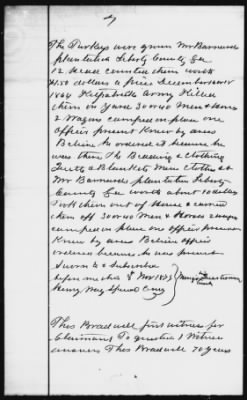 The Turkeys were on Mr Barnard
plantation Liberty County Ga
12 head counted them worth
$1.50 dollars a piece December
1864 Kilpatrick Army Killed
them in yard 30 or 40 Men &
2 Wagons camped on place one
officer present Know by arms
Believe he ordered it because he
was there The Bedding & Clothing
Quilts & Blankets Mens clothes at
Mr Barnards plantation Liberty
County Ga worth about 10 dollars
Took them out of House & carried
them off 30 or 40 Men & Horses 2 wagons
camped on place one officer present
Know by arms Believe officer
ordered because he was present
Sworn to & Subscribed
before me this 8 Nov 1873
Henry Way Special Com
Thos Bradwell first witness for
Claimant To question 1 Witness
answers Thos Bradwell 70 years